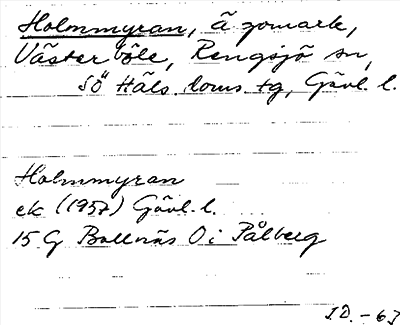 Holmmyran, ägomark,
Västerböle, Rengsjö sn,
SÖ Häls. doms. tg, Gävl. l.
Holmmyran
ek (1957) Gävl. l.
15 G Bollnäs O i Pålberg
I D. -63